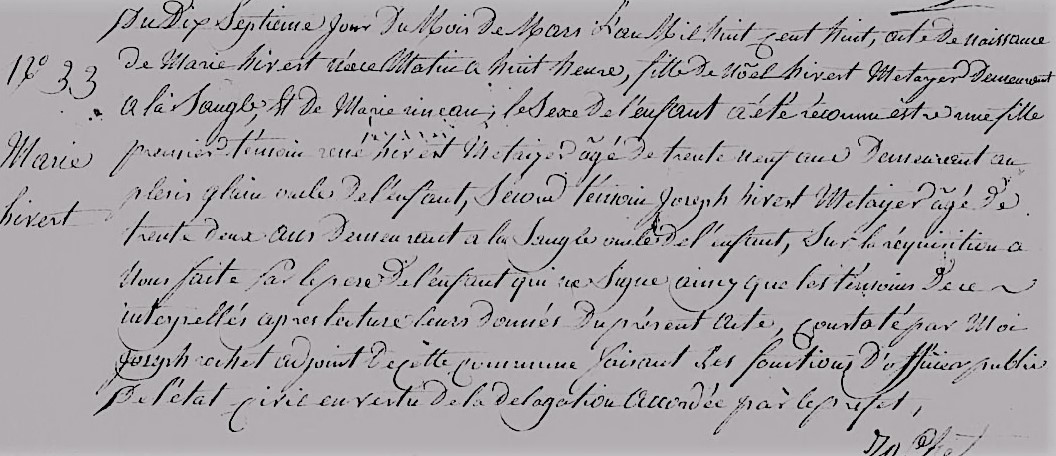 Du Dix Septieme Jour Du Mois De Mars L'an Mil huit Cent huit, acte de naissance
N° 33
de Marie hivert née ce Matin a huit heure, fille de Nöel hivert Metayer Demeurant
a la Saugle, Et De Marie rineau; le Sexe De l'enfant a été reconnu estre une fille
Marie
premier témoin rené hivert Metayer âgé De trente neuf ans Demeurant au
plesis glain oncle de l'enfant, Second témoin Joseph hivert Metayer âgé De
hivert
trente deux ans Demeurant a la Saugle oncle De l'enfant, Sur la réquisition a
Nous faite par le pere De l'enfant qui ne Signe ainsy que les témoins De ce
interpellés apres lecture leurs donnés Du présent acte, constaté par Moi
Joseph rochet adjoint De cette commune faisant Les fonctions D'officier public
De l'état civil en vertu de la delagation accordée par le prefet,